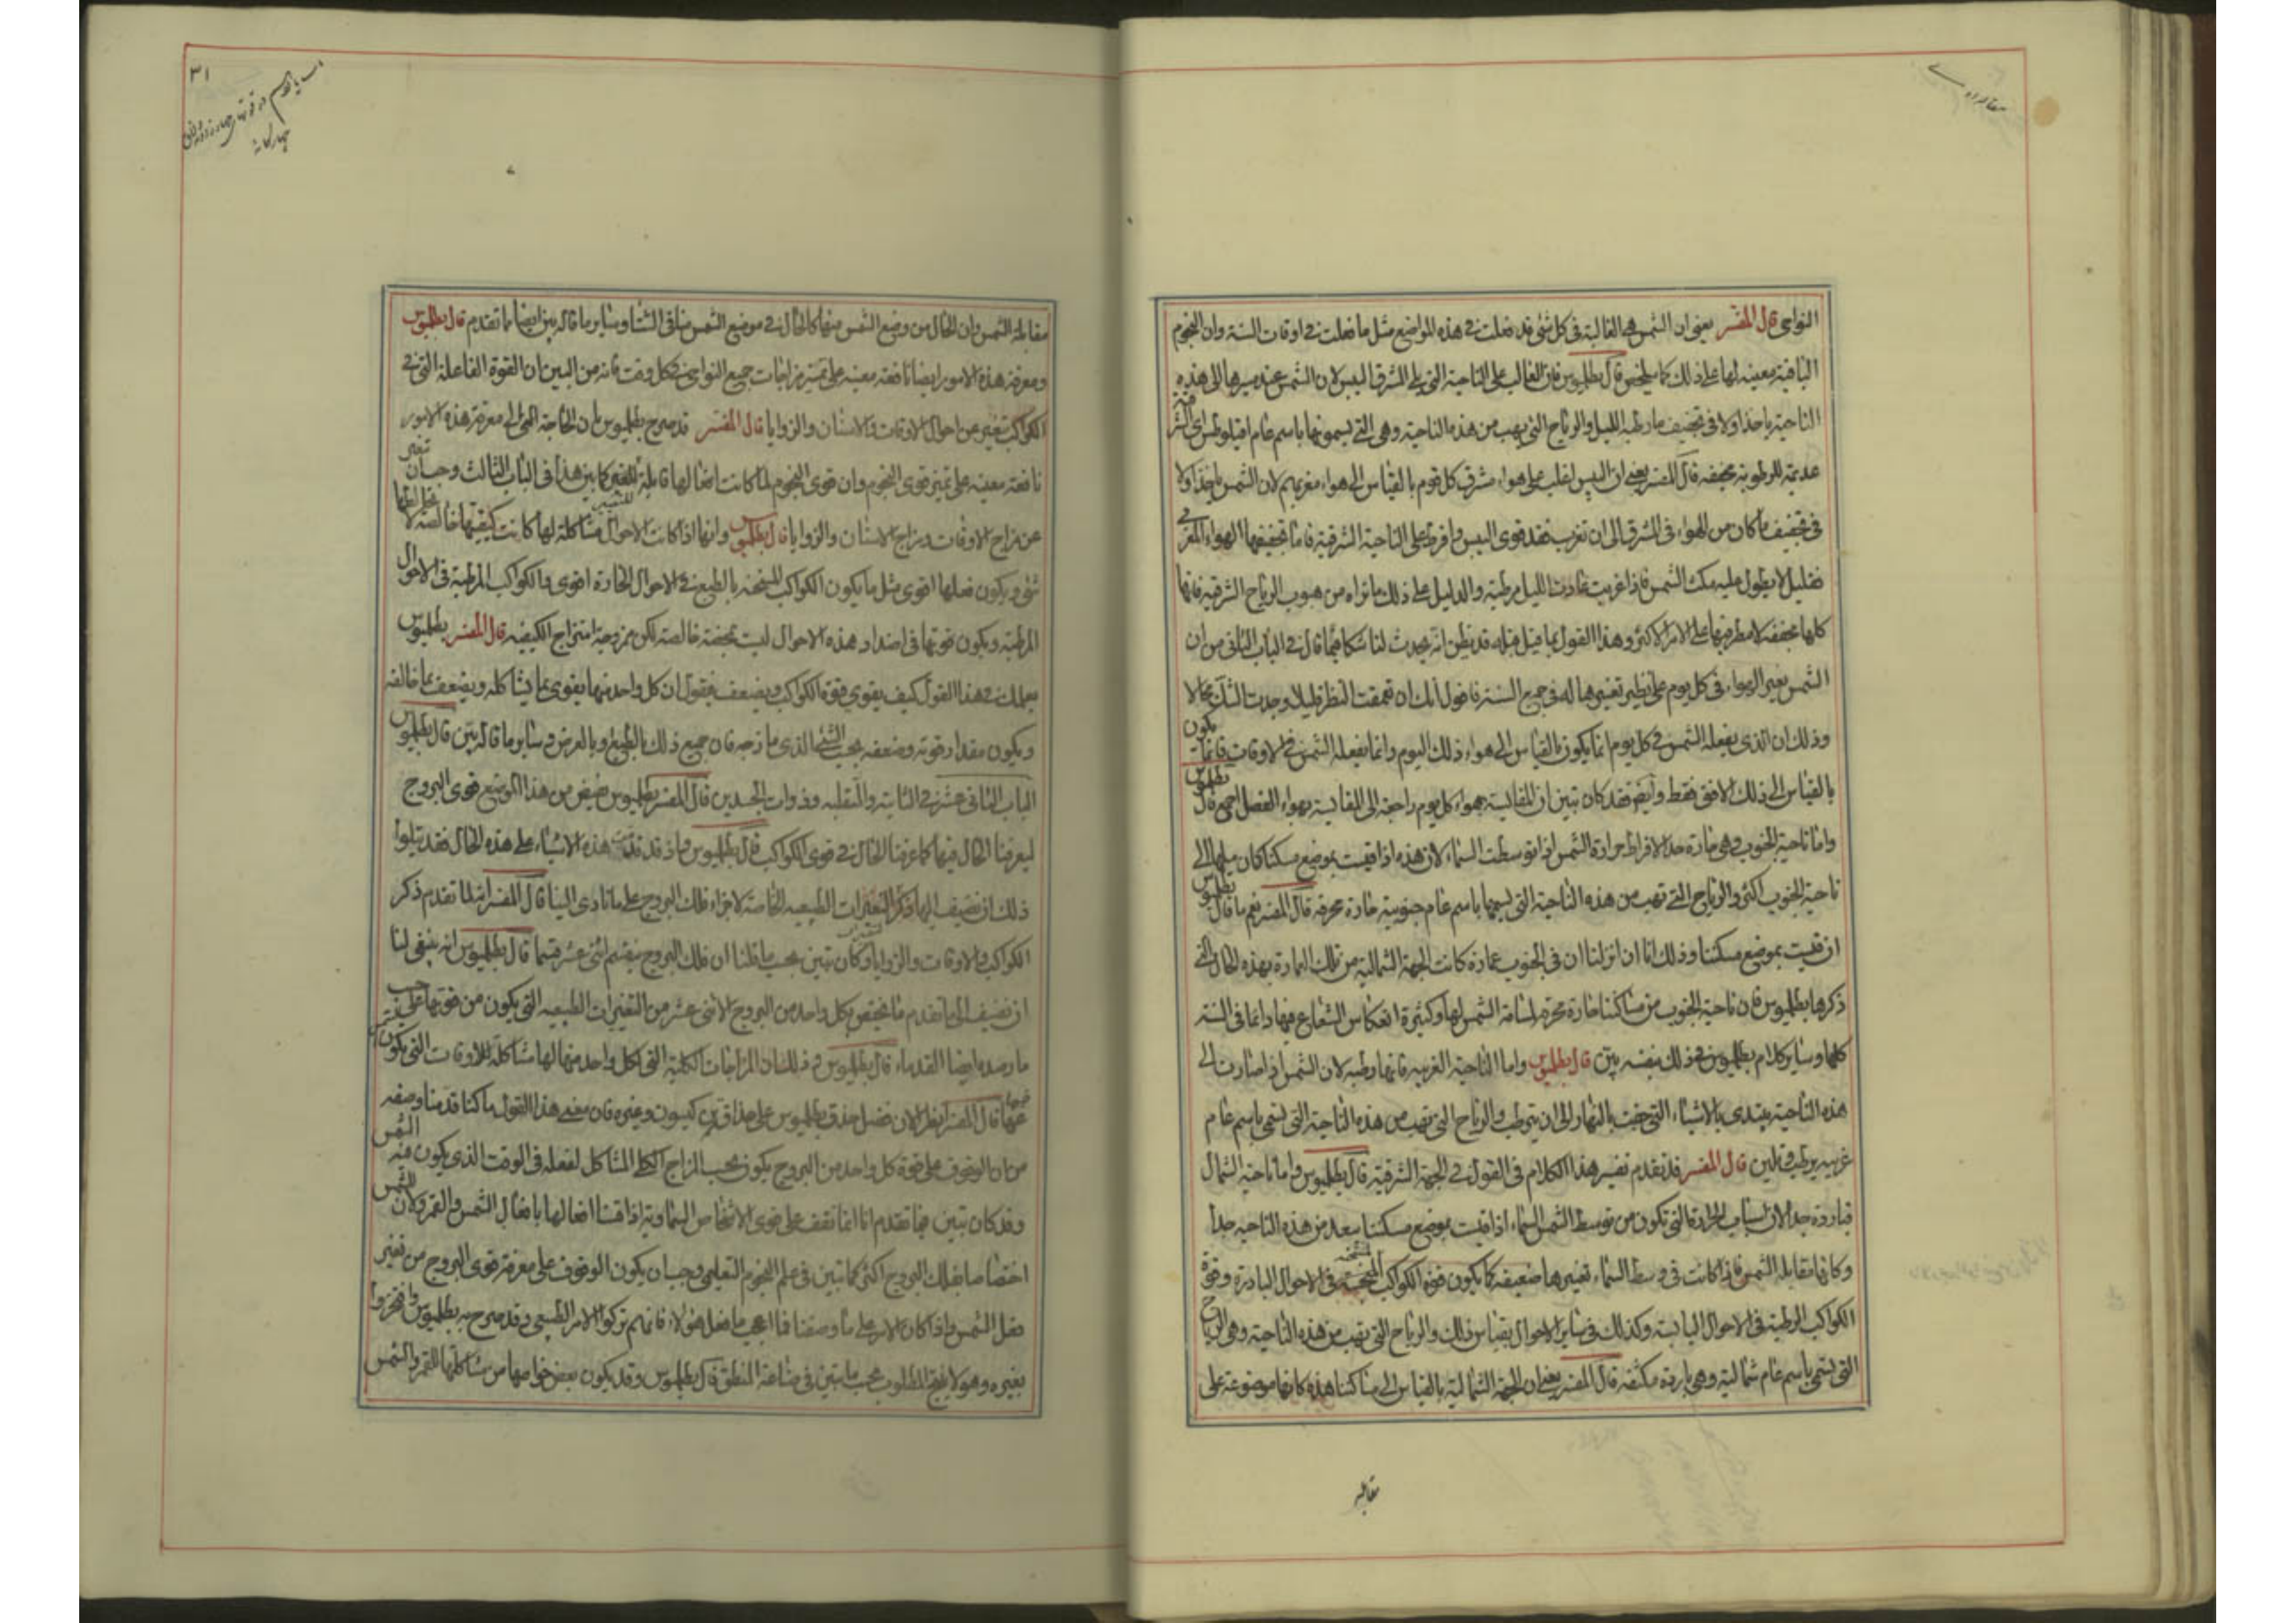 النواحى قال المفسر يعنى ان الشمس هى الغالبة فى كل شئ قد فعلت فى هذه المواضع مثل ما فعلت فى اوقات السنة وان النجوم
الباقية معينة لها على ذلك كما يلخص قال بطلميوس فان الغالب على الناحية التى يلى المشرق اليبس لان الشمس عند مسيرها الى هذه
الناحية ياخذ اولا فى تجفيف ما رطبه الليل والرياح التى يهب من هذه الناحية وهى التى يسمونها باسم عام
عديمة للرطوبة مجففه قال المفسر يعنى ان اليبس اغلب على هواء مشرق كل قوم بالقياس الى هواء مغربهم لان الشمس ياخذ اولا
فى تجفيف ما كان من الهواء فى المشرق الى ان تغرب فقد قوى اليبس وافرط على الناحية الشرقية فاما تجفيفها الهواء المغربى
فقليل لا يطول عليه مكث الشمس فاذا غربت عادت الليل مرطبة والدليل على ذلك ما نراه من هبوب الرياح الشرقيه فانها
كلها مجففه لا مطر فيها على الامر الاكثر وهذا القول بما قيل قبله قد يظن انه يحدث لنا شكا فيما قال فى الباب الثانى من ان
الشمس يغير الهواء فى كل يوم على نظير تغييرها له فى جميع السنة فاقول انك ان تعمقت النظر قليلا وجدت الشك محالا
وذلك ان الذى يفعله الشمس فى كل يوم انما يكون بالقياس الى هواء ذلك اليوم وانما يفعله الشمس فى الاوقات فانما يكون
بالقياس الى ذلك الافق فقط وايضا فقد كان تبين ان المقايسة بهواء كل يوم راجعة الى المقايسة بهواء الفصل اجمع قال بطلميوس
واما ناحية الجنوب فهى حارة جدا لافراط حرارة الشمس اذا توسطت السماء لان هذه اذا قيست بموضع مسكننا كان ميلها الى
ناحية الجنوب اكثر والرياح التى تهب من هذه الناحية التى يسمها باسم عام جنوبية حارة محرقه قال المفسر نعم ما قال بطلميوس
ان قيست بموضع مسكننا وذلك انا ان انزلنا ان فى الجنوب عمارة كانت الجهة الشمالية من تلك العمارة بهذه الحال التى
ذكرها بطلميوس فان ناحية الجنوب من مساكننا حارة محرقة لمسامتة الشمس لها وكثرة انعكاس الشعاع فيها دائما فى السنة
كلها وسائر كلام بطلميوس فى ذلك بنفسه بين قال بطلميوس واما الناحية الغربيه فانها رطبه لان الشمس اذا صارت الى
هذه الناحية يبتدى بالاشياء التى جفت بالنهار الى ان يترطب والرياح التى تهب من هذه الناحية التى تسمى باسم عام
غربيه يرطب وتلين قال المفسر قد تقدم تفسير هذا الكلام فى القول فى الجهة الشرقية قال بطلميوس واما ناحية الشمال
فباردة جدا لان اسباب الحرارة التى تكون من توسط الشمس السماء اذا قيست بموضع مسكننا يبعد من هذه الناحيه جدا
وكانها مقابلة الشمس فاذا كانت فى وسط السماء تغييرها ضعيفه كما يكون قوة الكواكب المسخنة فى الاحوال الباردة وقوة
الكواكب الرطبة فى الاحوال اليابسة وكذلك فى سائر الاحوال بقياس ذلك والرياح التى تهب من هذه الناحية وهى الرياح
التى تسمى باسم عام شمالية وهى باردة مكثفه قال المفسر يعنى ان الجهة الشمالية بالقياس الى مساكننا هذه كانها موضوعة على
مقابلة
٣١
مقابلة الشمس وان الحال من وضع الشمس منها كالحال فى موضع الشمس منا فى الشتا وسائر ما قاله بين ايضا بما تقدم قال بطلميوس
ومعرفة هذه الامور ايضا نافعه معينه على تمييز مزاجات جميع النواحى فى كل وقت فانه من البين ان القوة الفاعلة التى فى
الكواكب تتغير عن احوال الاوقات والاسنان والزوايا قال المفسر قد صرح بطلميوس بان الحاجة الى معرفة هذه الامور
نافعه معينة على تمييز قوى النجوم وان قوى النجوم لما كانت افعالها قابلة للتغير كما بين هذا فى الباب الثالث وجب ان تتغير
عن مزاج الاوقات ومزاج الاسنان والزوايا قال بطلميوس وانها اذا كانت الاحوال مشاكلة لها كانت كيفيتها خالصة لا يخالطها
شئ ويكون فعلها اقوى مثل ما يكون الكواكب المسخنه بالطبع فى الاحوال الحارة اقوى والكواكب المرطبة فى الاحوال
المرطبة ويكون قوتها فى اضداد هذه الاحوال ليست محضة خالصة لكن ممزوجة امتزاج الكيفيه قال المفسر بطلميوس
يعلمك فى هذا القول كيف يقوى قوة الكواكب ويضعف فيقول ان كل واحد منها يقوى بما يشاكله ويضعف بما خالفه
ويكون مقدار قوته وضعفه بحسب الشئ الذى مازجه فان جميع ذلك بالطبع وبالعرض وسائر ما قاله بين قال بطلميوس
الباب الثانى عشر فى الثابتة والمنقلبه وذوات الجسدين قال المفسر بطلميوس من هذا الموضع قوى البروج
ليعرفنا الحال فيها كما عرفنا الحال فى قوى الكواكب قال بطلميوس واذ قد قدمت هذه الاشياء على هذه الحال فقد يتلوا
ذلك ان نضيف اليها ذكر التغيرات الطبيعيه الخاصة لاجزاء فلك البروج على ما تادى الينا قال المفسر انه لما تقدم ذكر
الكواكب والاوقات والزوايا وكان تبين بحسب ما قلنا ان فلك البروج ينقسم اثنى عشر قسما قال بطلميوس انه ينبغى لنا
ان نضيف الى ما تقدم ما يختص بكل واحد من البروج الاثنى عشر من التغيرات الطبيعيه التى يكون من قوتها على حسب
ما رصده ايضا القدماء قال بطلميوس وذلك ان المزاجات الكلية التى لكل واحد منها لها مشاكلة للاوقات التى يكون
فيها قال المفسر انظر الان فضل حذق بطلميوس على حذاق وغيره فان معنى هذا القول ما كنا قدمنا وصفه
من ان الوقوف على قوة كل واحد من البروج يكون بحسب المزاج الكلى المشاكل لفعله فى الوقت الذى يكون فيه الشمس
وقد كان تبين فيما تقدم انا انما نقف على قوى الاشخاص السماوية اذا قسنا افعالها بافعال الشمس والقمر ولان للشمس
اختصاصا بفلك البروج اكثر كما تبين فى علم النجوم التعليمى وجب ان يكون الوقوف على معرفة قوى البروج من تغير
فعل الشمس واذا كان الامر على ما وصفنا فما اعجب ما فعل هؤلاء فانهم تركوا الامر الطبيعى وقد صرح به بطلميوس
بغيره وهو لا ينتج المطلوب بحسب ما تبين فى صناعة المنطق قال بطلميوس وقد يكون بعض خواصها من مشاكلتها للقمر والشمس